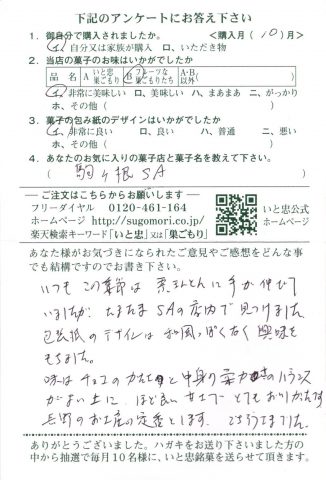 下記のアンケートにお答え下さい
1. 御自分で購入されましたか。 <購入月 ( 10 ) 月>
イ、自分又は家族が購入 ロ、いただき物
2. 当店の菓子のお味はいかがでしたか
品 名 A いと忠巣ごもり B フルーツな巣ごもりたち A・B.以外( )
イ、非常に美味しい ロ、美味しい ハ、まあまあ ニ、がっかり
ホ、その他 ( )
3. 菓子の包み紙のデザインはいかがですか
イ、非常に良い ロ、良い ハ、普通 ニ、悪い
ホ、その他 ( )
4. あなたのお気に入りの菓子店と菓子名を教えて下さい。
( 駒ヶ根SA )
ご注文はこちらからお願いします
フリーダイヤル 0120-461-164
ホームページ http://sugomori.co.jp/
楽天検索キーワード「いと忠」又は「巣ごもり」
いと忠公式
ホームページ
あなた様がお気づきになられたご意見やご感想をどんな事
でも結構ですのでお書き下さい。
いつも この季節は 栗きんとんに 手が 伸びて
いましたが、たまたま SAの店内で 見つけました。
包装紙の デザインは 和風っぽくなく 興味を
もちました。
味は チョコの かたさと 中身の
がよい上に ほど良い 甘さで とても おいしかったです
長野の お土産の定番とします。 ごちそうさまでした。
ありがとうございました。ハガキをお送り下さいました方の
中から抽選で毎月10名様に、いと忠銘菓を送らせて頂きます。